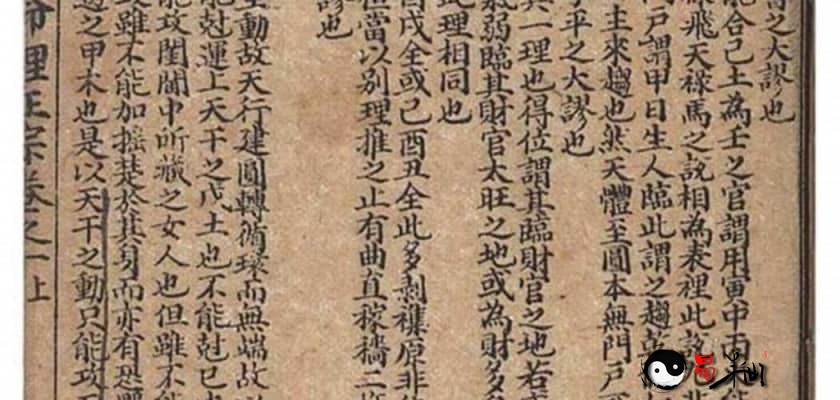 之大謬也
能合己土為壬之官謂用寅中丙
飛天祿馬之說相為表裡此
門戶謂甲日生人臨此謂之趨
主來趨也然天體至圓本無門戶
子平之大謬也
其一理也得位謂其臨財官之地若
氣弱臨其財官太旺之地或為財多
此理相同也
酉戌全或己酉丑全此多剥襍原非
但當以別理推之止有曲直稼穡二
謬也
主動故天行建圓轉循環而無端故
能尅運上天干之戊土也不能尅巳
能攻閨閫中所藏之女人也但雖不
雖不能加搖楚於其身而亦有恐
之甲木也是以天干之動只能攻
命理正宗卷之一上